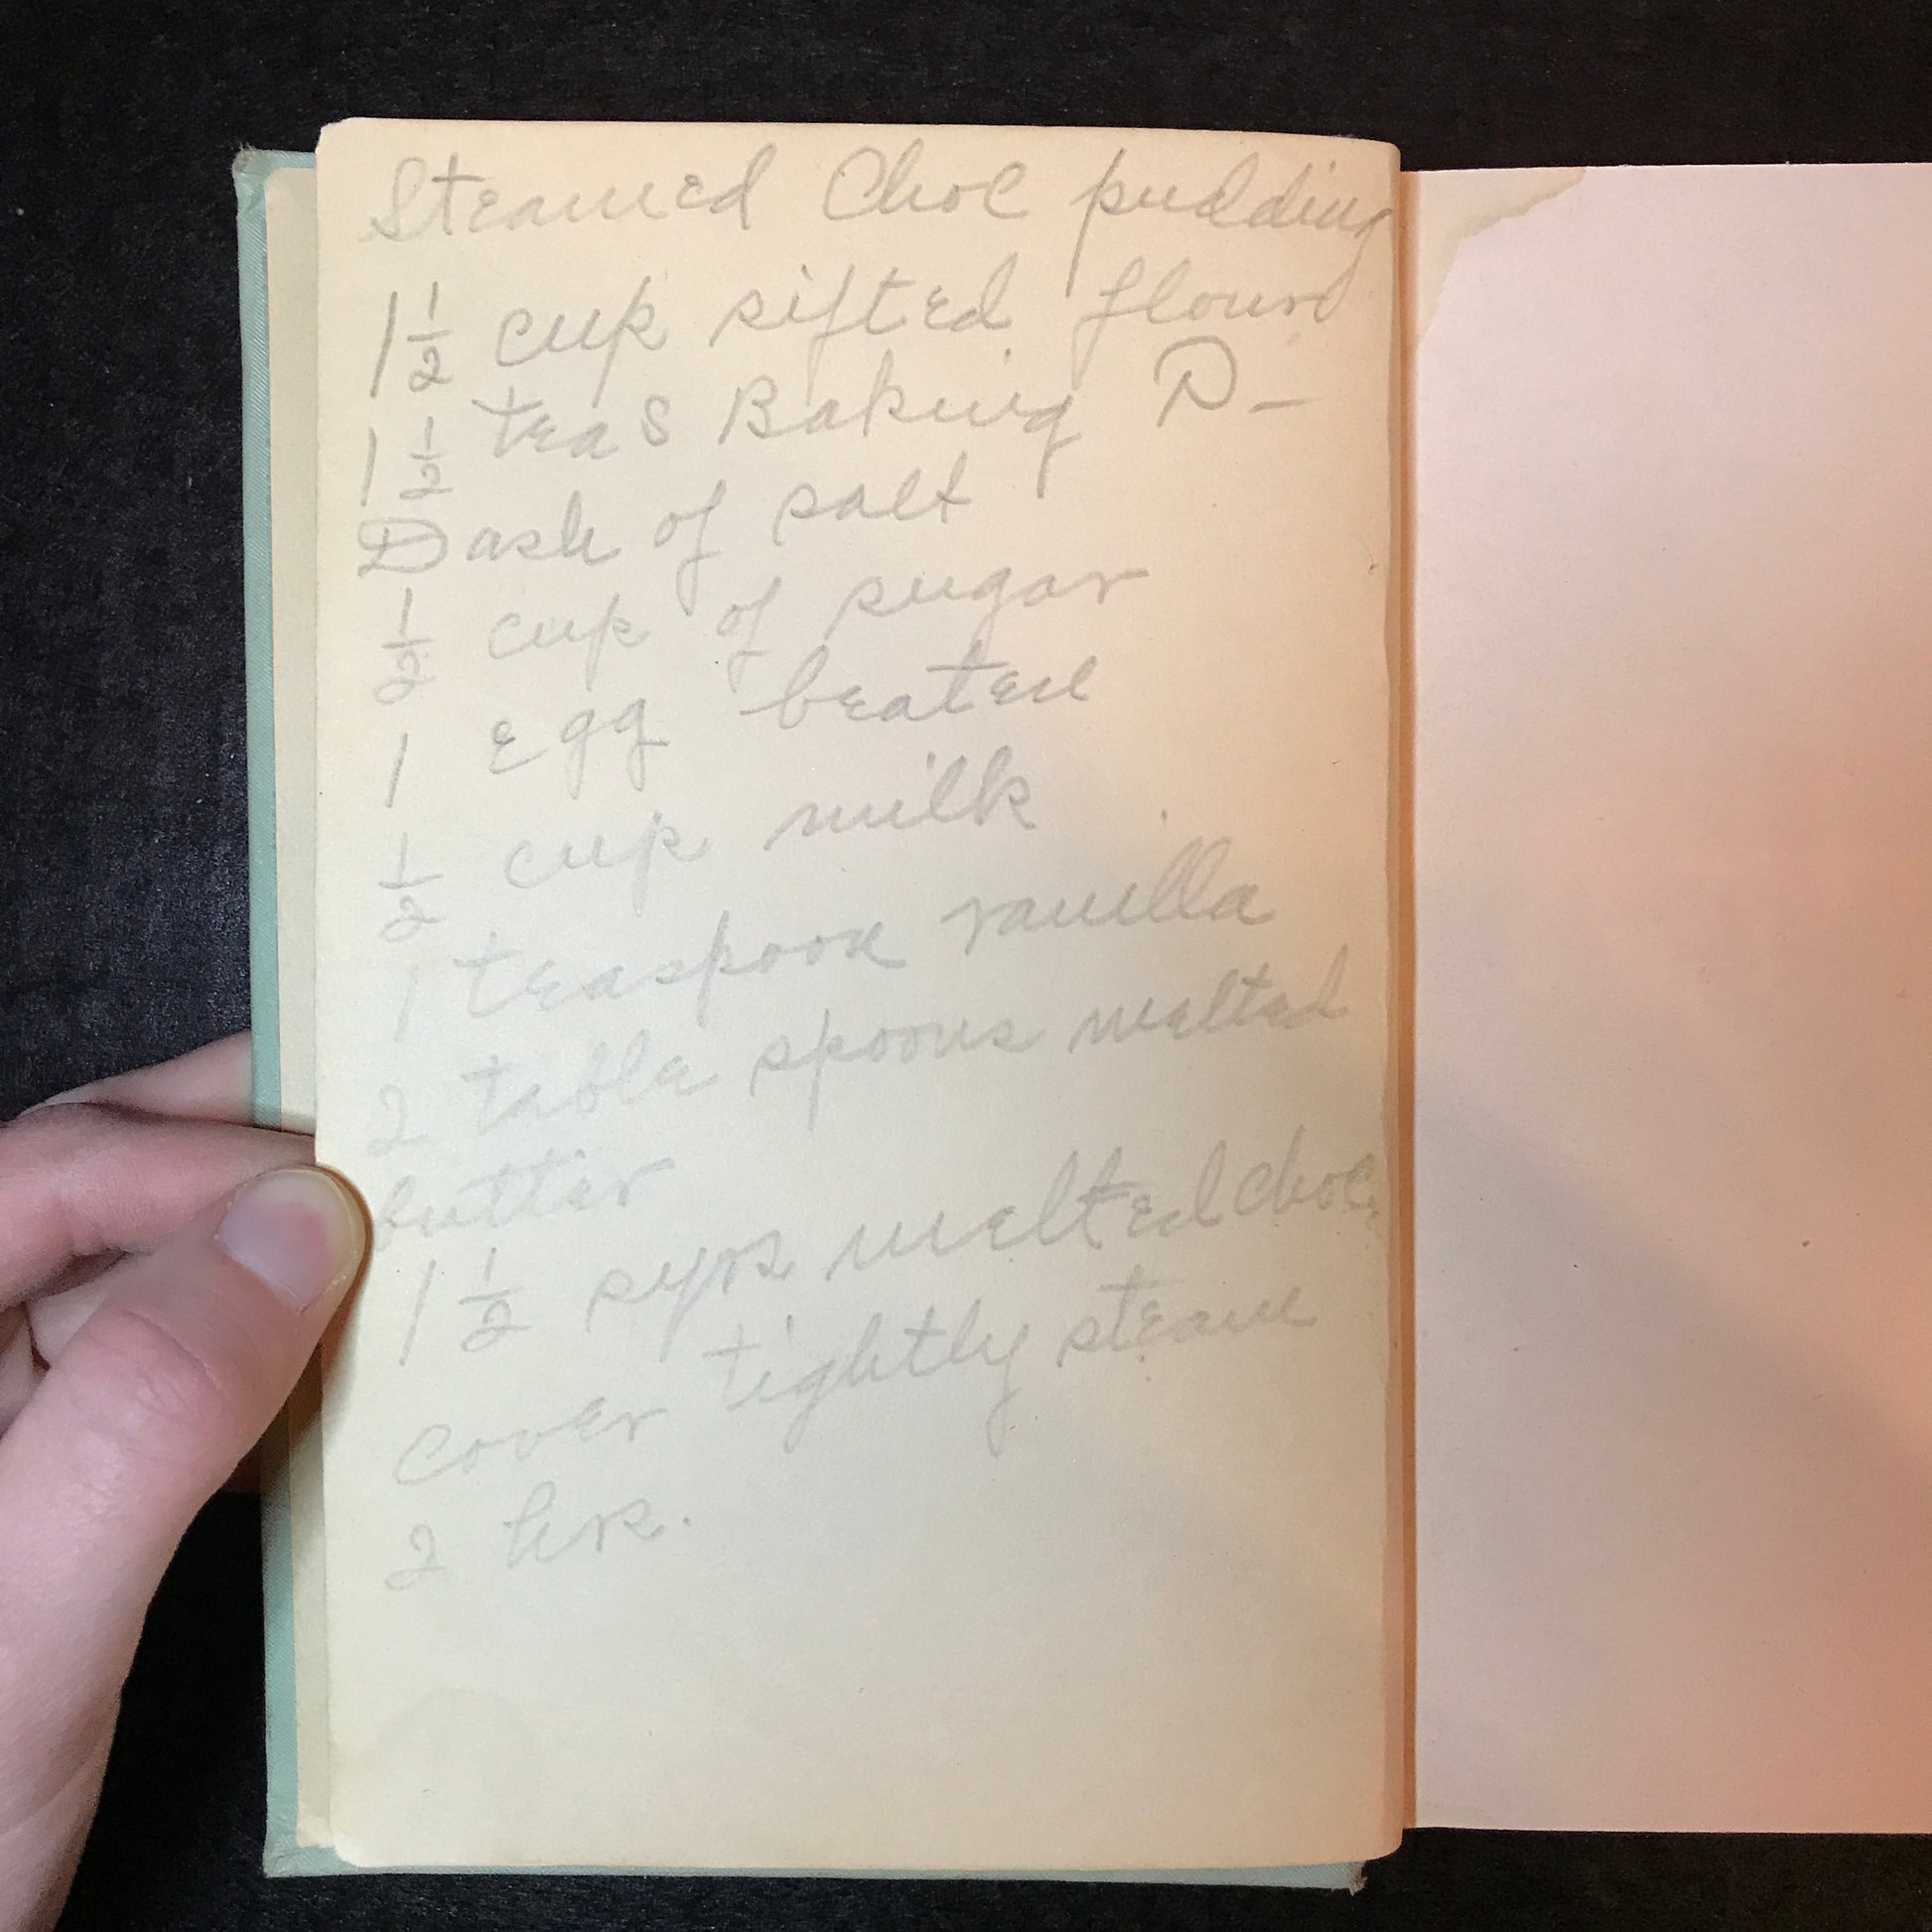 Steamed Choc pudding
1 1/2 cup sifted flour
1 1/2 teas Baking P-
Dash of salt
1/2 cup of sugar
1 egg beaten
1/2 cup milk
1 teaspoon vanilla
2 table spoons melted
butter
1 1/2 sqrs melted choc.
cover tightly steam
2 hrs.